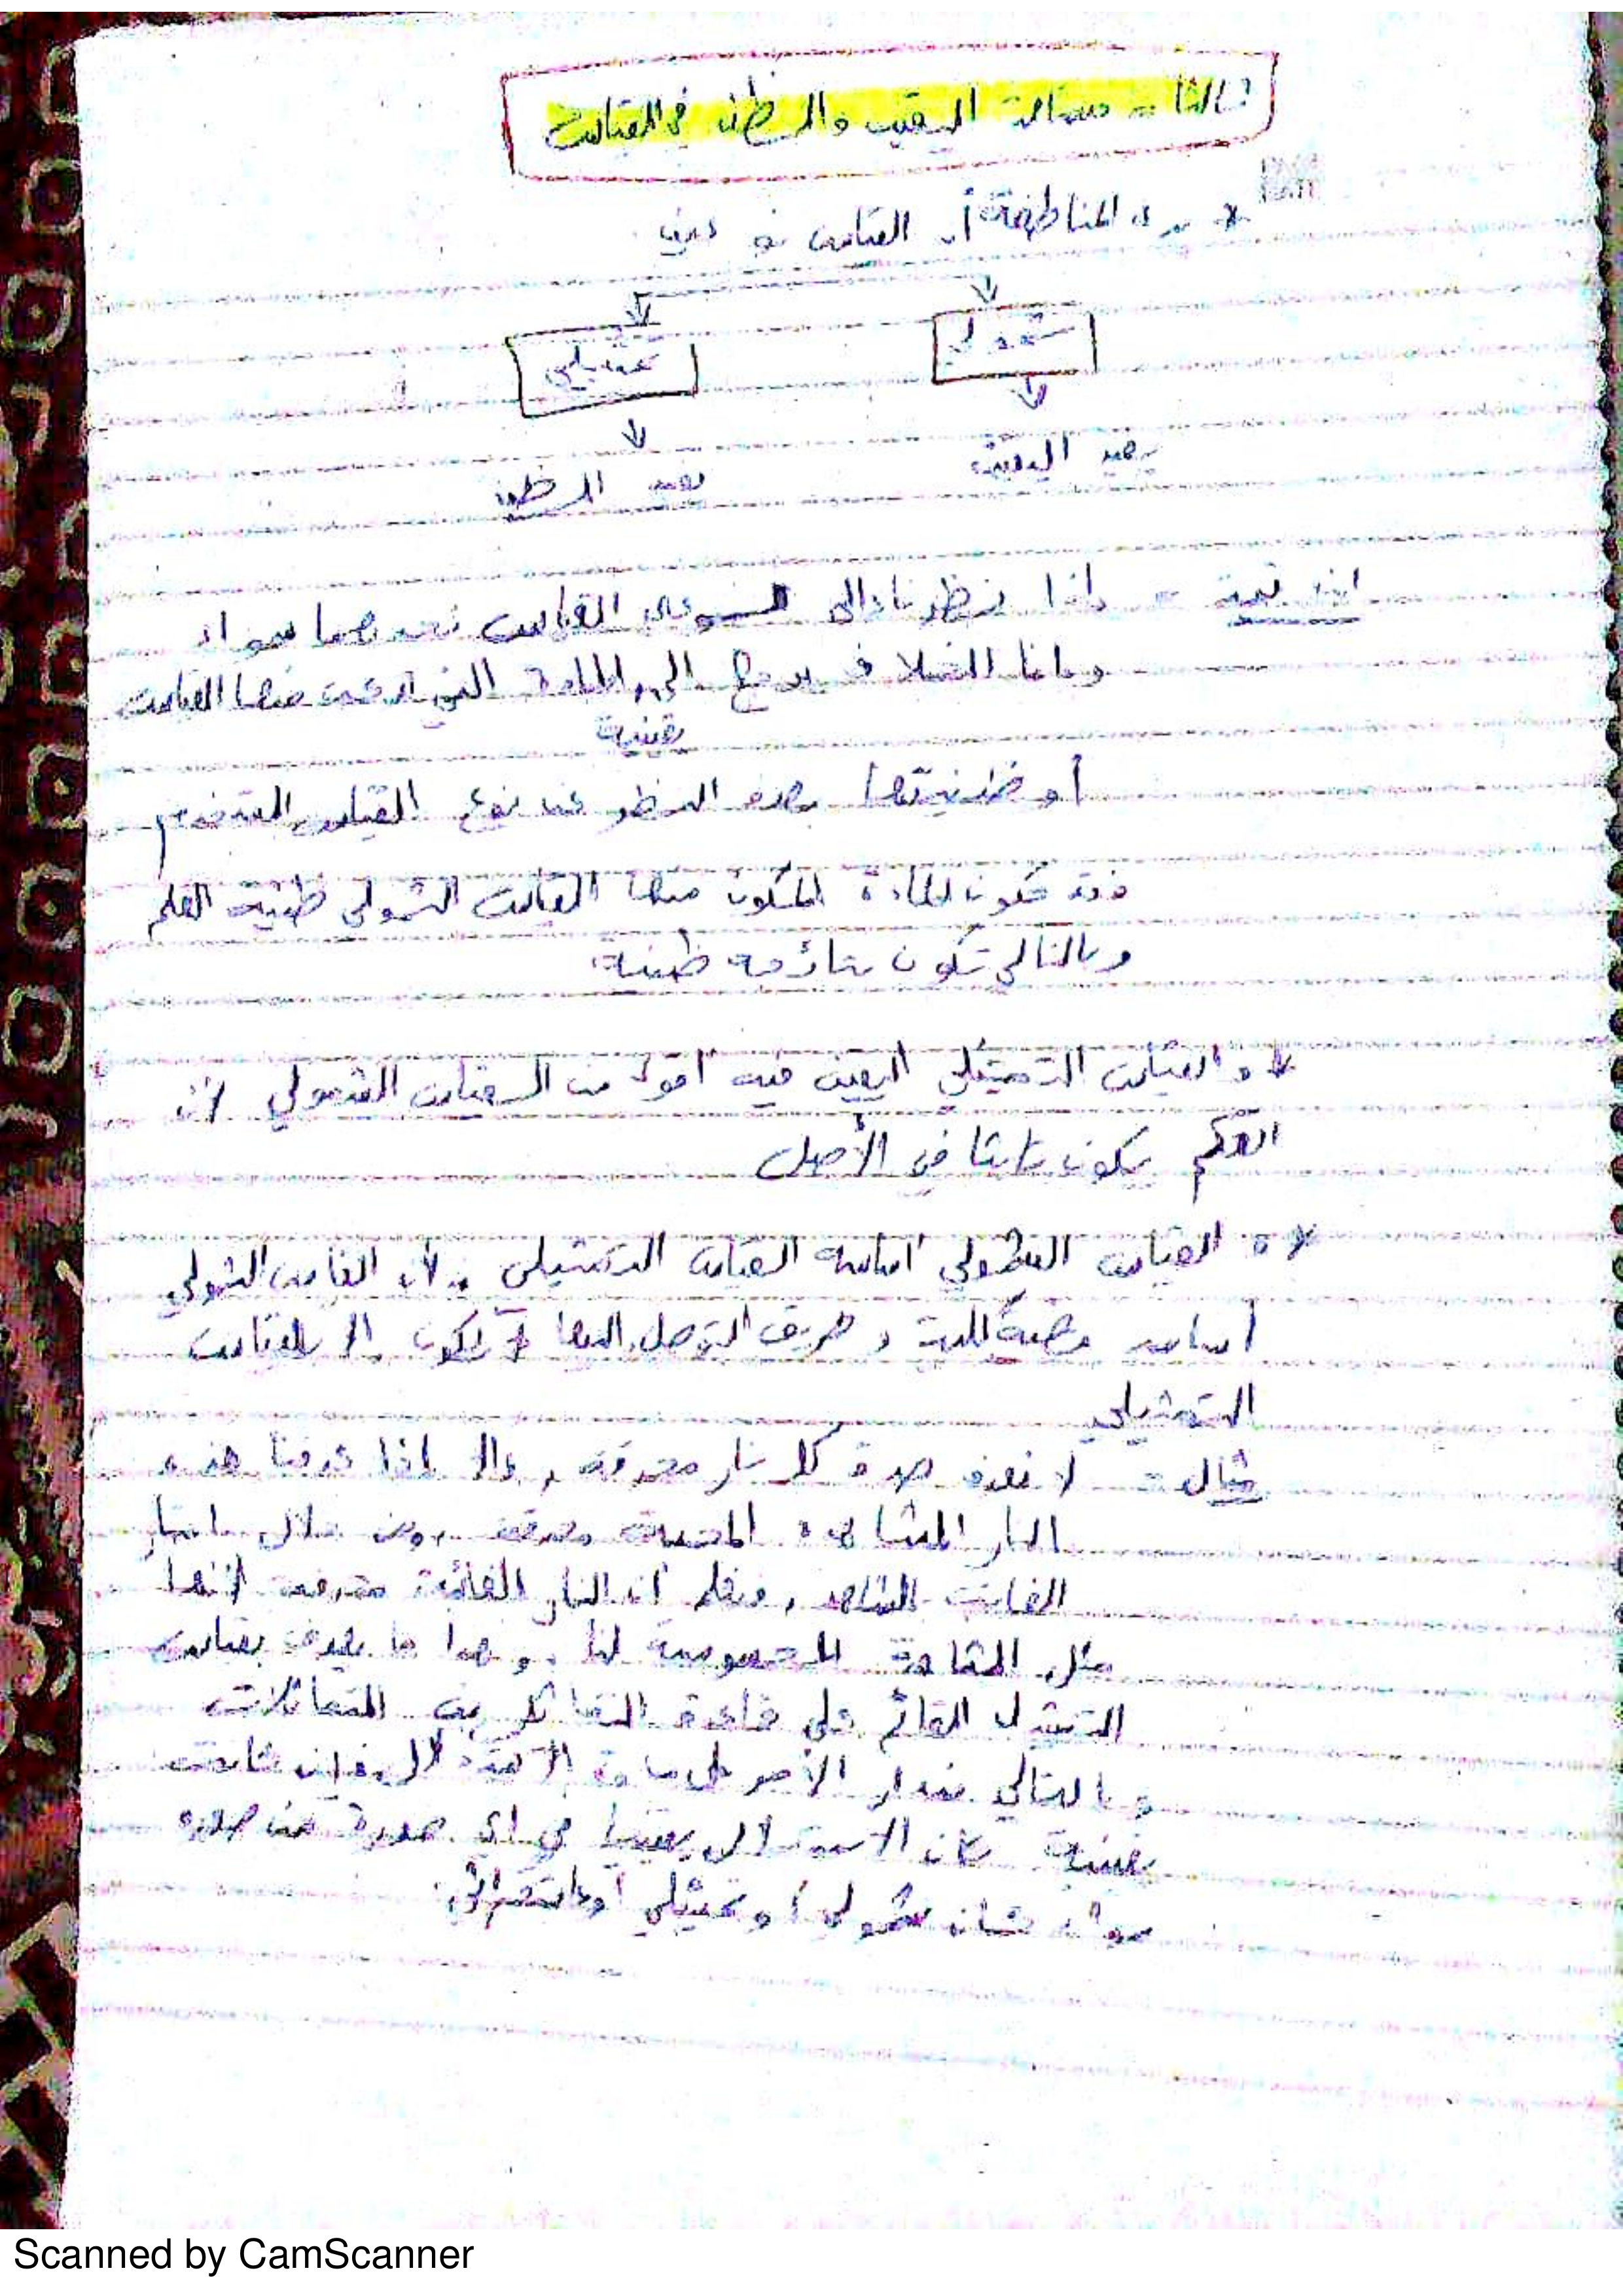 ثالثا :- مسألة اليقين والظن في القياس
* يرى المناطقة أن القياس نوعين
شمولي
تمثيلي
يفيد اليقين
يفيد الظن
ابن تيمية :- إذا نظرنا إلى نوعي القياس نجدهما سواء
وإنما الخلاف يرجع إلى المادة التي منها القياس
يقينية
أو ظنيتها بصرف النظر عن نوع القياس المستخدم
فقد تكون المادة المكون منها القياس الشمولي ظنية العلم
وبالتالي تكون نتائجه ظنية
* والقياس التمثيلي اليقين فيه أقوى من القياس الشمولي لأن
الحكم يكون ثابتا في الأصل
* القياس الشمولي أساسه القياس التمثيلي ، لأن القياس الشمولي
أساسه قضية كلية وطريق التوصل إليها لا يكون إلا بالقياس
التمثيلي
مثال :- لا نعرف صدق كل نار محرقة ، إلا إذا عرفنا هذه
النار المشاهدة المعينة محرقة ومن خلال اعتبار
الغائب بالشاهد ، ونعلم أن النار الغائبة محرقة لأنها
مثل المشاهدة المحسوسة لنا ، وهذا ما يعرف بقياس
التمثيل القائم على قاعدة التماثل بين المتماثلات
وبالتالي مدار الأمر على مادة الاستدلال فإن كانت
يقينية كان الاستدلال يقينيا في أي صورة من صوره
سواء كان شمولي أو تمثيلي أو استقرائي
Scanned by CamScanner